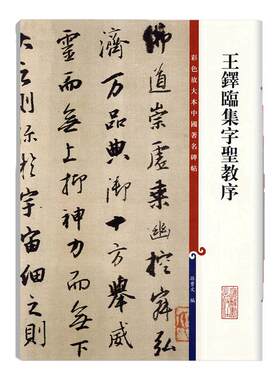 王鐸臨集字聖教序
彩色放大本中國著名碑帖
孫寶文 編
佛道崇虛乘幽控寂弘
濟萬品典御十方舉威
靈而無上抑神力而無下
大之則彌於宇宙細之則